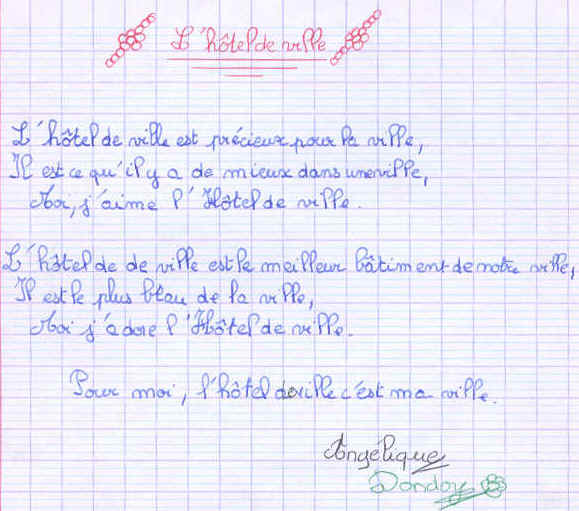 L'hôtel de ville
L'hôtel de ville est précieux pour la ville,
Il est ce qu'il y a de mieux dans une ville,
Moi, j'aime l'Hôtel de ville.
L'hôtel de de ville est le meilleur bâtiment de notre ville,
Il est le plus beau de la ville,
Moi j'adore l'Hôtel de ville.
Pour moi, l'hôtel de ville c'est ma ville.
Angélique
Dondoy